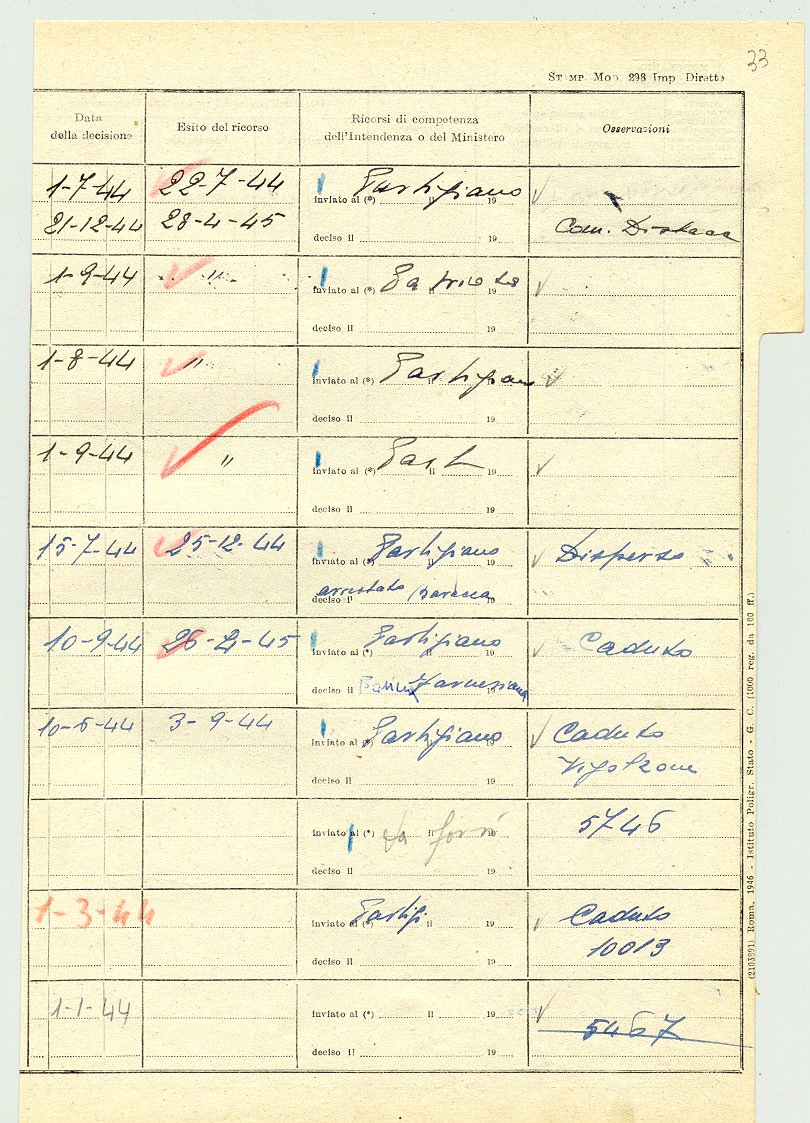 33
STAMP. MOD. 298 Imp Dirette
Data della decisione
Esito del ricorso
Ricorsi di competenza dell'Intendenza o del Ministero
Osservazioni
1-7-44 22-7-44 inviato al (*) Partigiano il 19
21-12-44 28-4-45 deciso il 19 Com. Distacc
1-9-44 " inviato al (*) Patriota il 19
deciso il 19
1-8-44 " inviato al (*) Partigiano il 19
deciso il 19
1-9-44 " inviato al (*) Part il 19
deciso il 19
15-7-44 25-12-44 inviato al (*) Partigiano 19 Disperso
arrestato
deciso il 19
10-9-44 26-2-45 inviato al (*) Partigiano il 19 Caduto
deciso il
10-6-44 3-9-44 inviato al (*) Partigiano 19 Caduto
deciso il 19 Vigolzone
inviato al (*) il 19 5746
deciso il 19
1-3-44 inviato al (*) Partigi il 19 Caduto
deciso il 19 10013
1-1-44 inviato al (*) il 19 5467
deciso il 19
(2103891) Roma, 1946 - Istituto Poligr. Stato - G. C. (1000 reg. da 100 ff.)